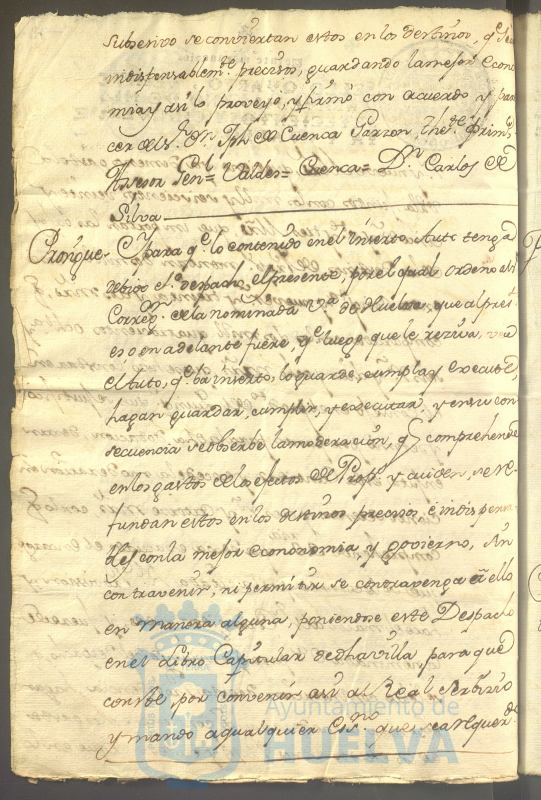 subserivo se conviertan estos en los destinos, q.e sean
indispensablem.te precisos, guardando la mejor Econo
mia y asi lo proveyo, y firmó con acuerdo y pare
cer del S.r D.n Jph de Cuenca Garzon, The.te prim.o
Asesor Gen.l = Valdes = Cuenca = D.n Carlos de
Silva
Prosigue - Y para q.e lo contenido en el inserto Auto tenga
debido e.to despacho el presente, por el qual ordeno al
Correg.r de la nominada v.a de Huelva, que al pres.te
es o en adelante fuere, q.e luego que le reziva, vea
el Auto, q.e va inserto, lo guarde, cumpla y execute,
hagan guardar, cumplir, y executar, y en su con
secuencia se observe la moderación, q.e comprehende
en los gastos de los efectos de Prop.s y cuiden, se re
fundan estos en los destinos precisos é indispensa
bles con la mejor economia y govierno, sin
contravenir, ni permitir se contravenga a ello
en manera alguna, poniendose este Despacho
en el Libro Capitular de dha villa para que
conste, por convenir asi al Real Servizio
y mando a qualquier Ess.no que sea requerido
Ayuntamiento de
HUELVA